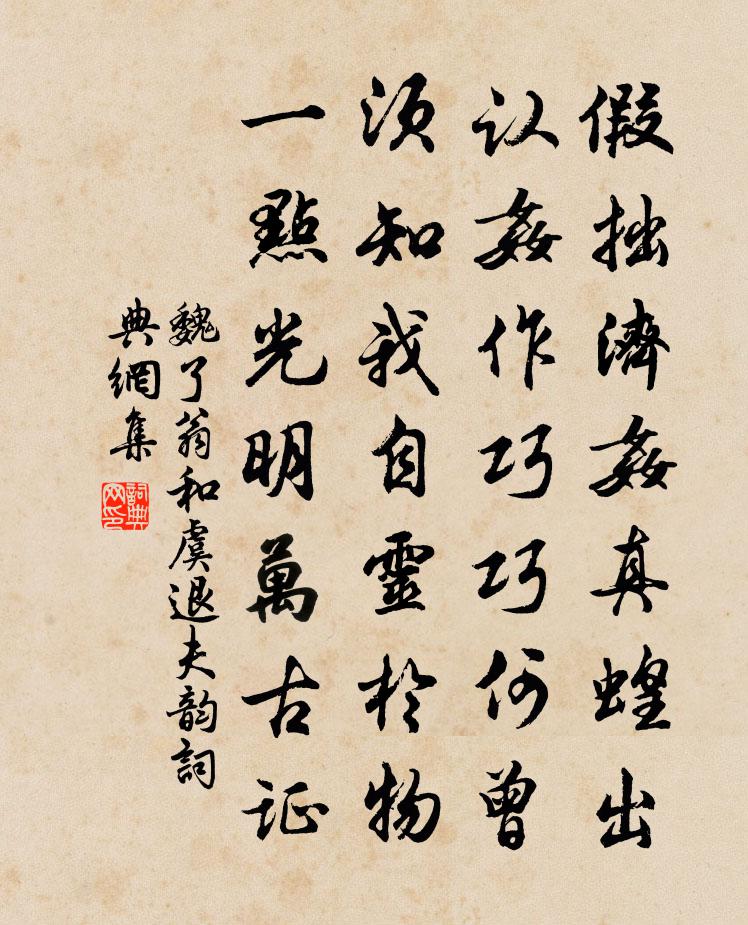 假拙濟姦真蝗出
认姦作巧巧何曾
須知我自靈於物
一點光明萬古证
魏了翁和虞退夫韵詞
典網集
詞典网印